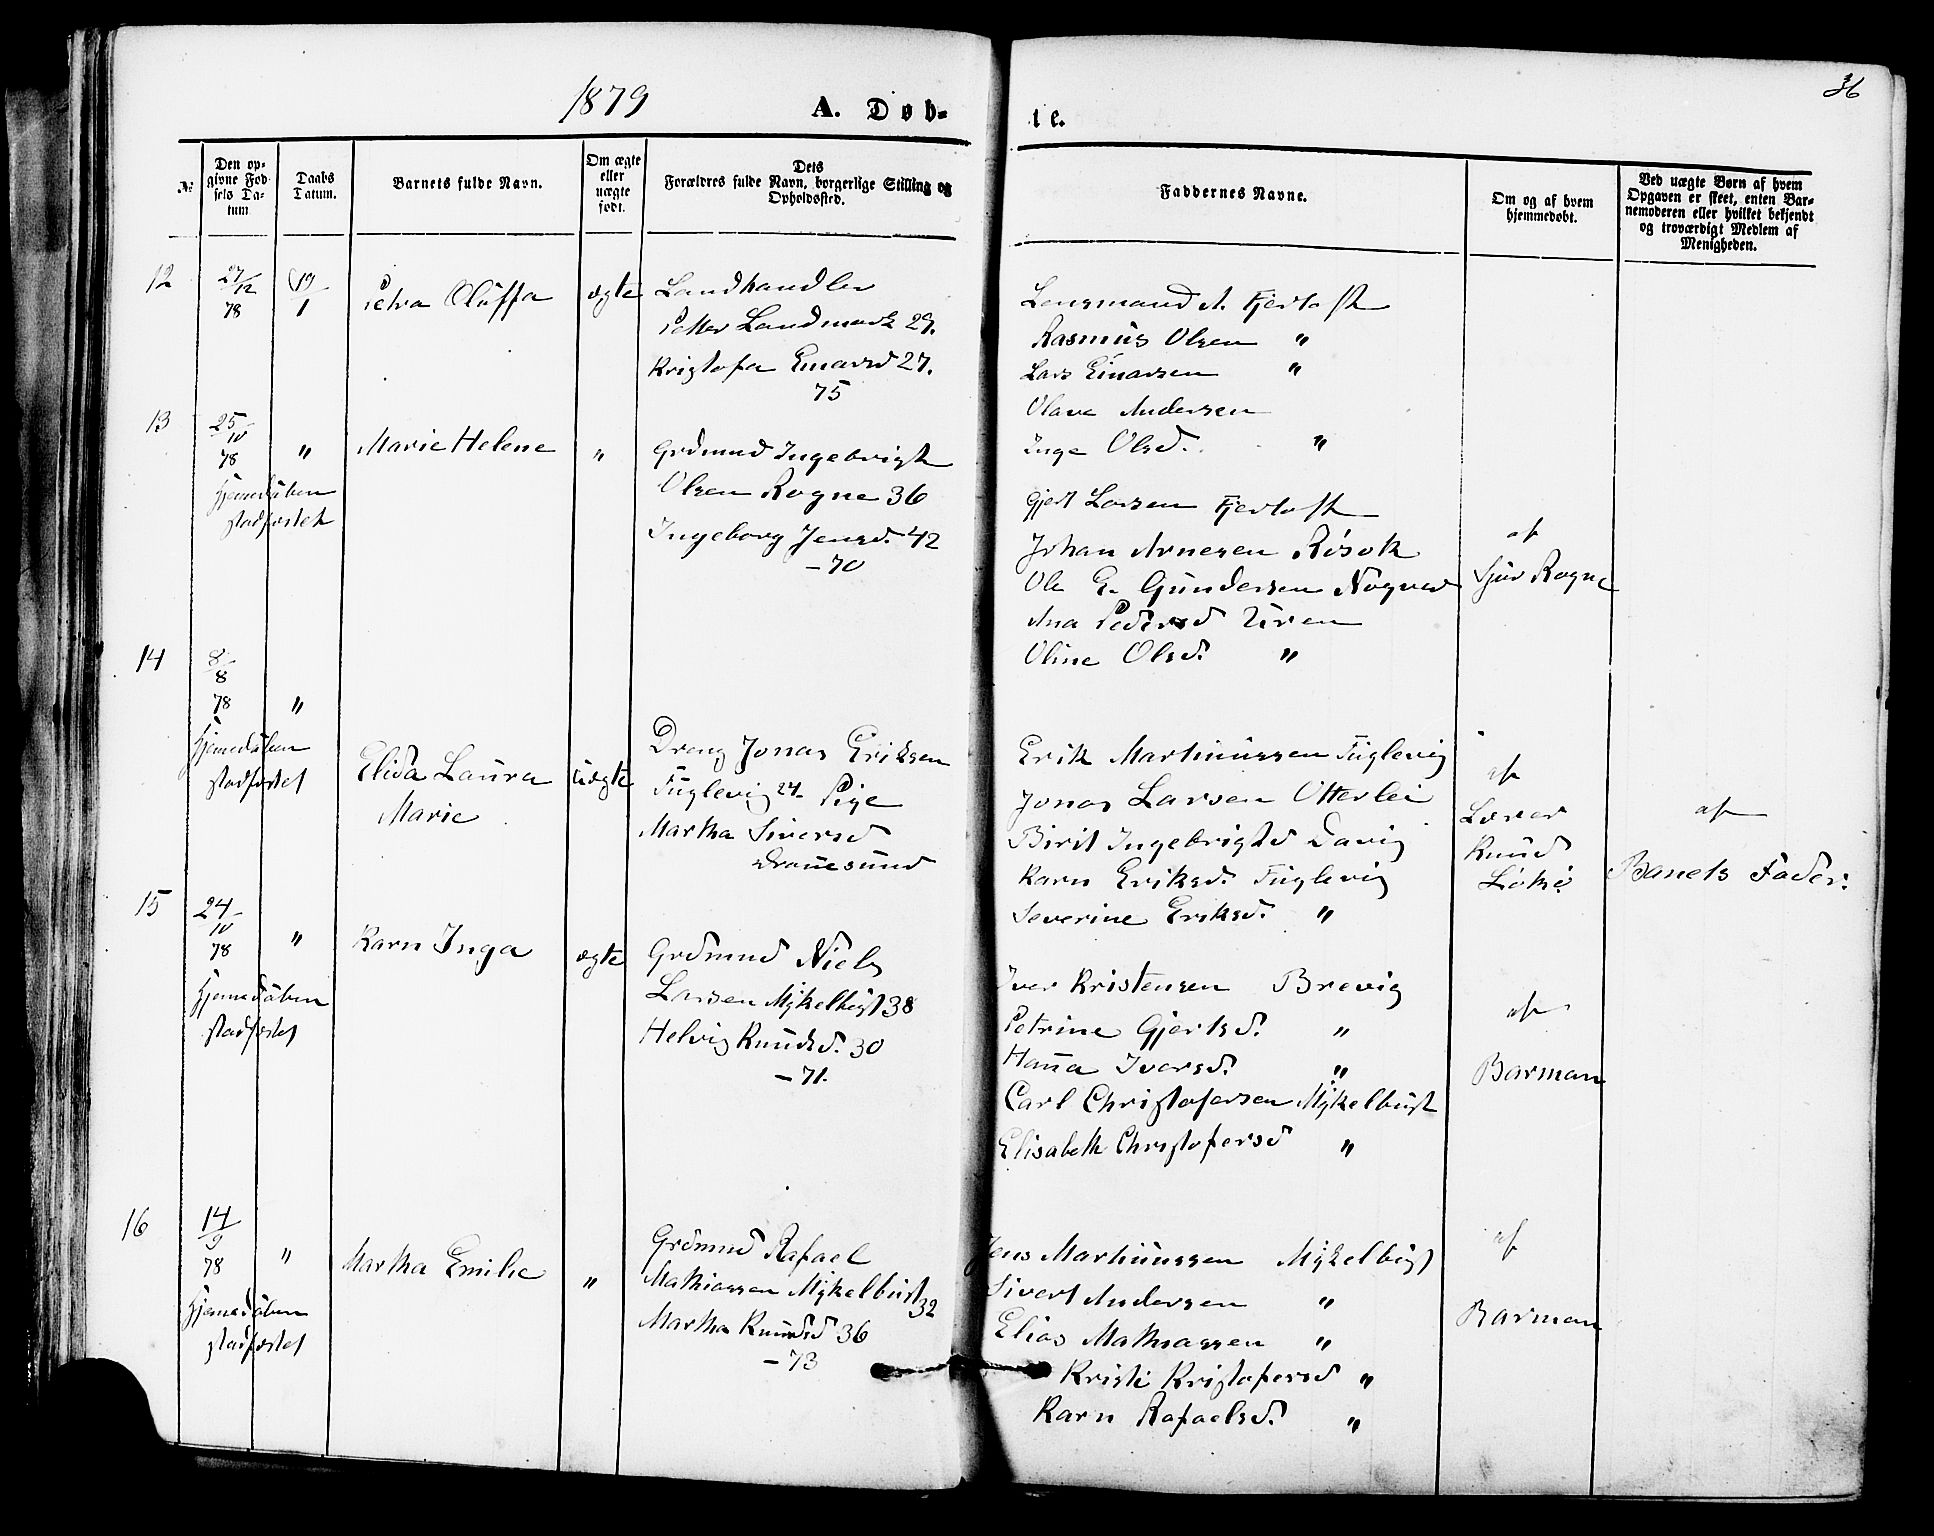 1879
A. Døb-
te.
36
№
Den op-
givne Fød-
sels Da-
tum
Daabs
Datum.
Barnets fulde Navn.
Om ægte
eller
uægte
født.
Dets
Forældres fulde Navn, borgerlige Stilling og
Opholdssted.
Faddernes Navne.
Om og af hvem
hjemmedøbt.
Ved uægte Børn af hvem
Opgaven er skeet, enten Bar-
nemoderen eller hvilket bekjendt
og troværdigt Medlem af
Menigheden.
12
27/12
78
19/1
Petra Oluffa
ægte
Landhandler
Petter Landmark 29.
Kristofa Einarsd 27.
75
Lensmand A. Fjertoft
Rasmus Olsen "
Lars Einarsen "
Olave Andersen
Inge Olsd. "
13
25/10
78
"
Hjemedåben
stadfæstet
Marie Helene
"
Grdmnd Ingebrigt
Olsen Rogne 36
Ingeborg Jensd. 42
- 70
Gjert Larsen Fjertoft
Johan Arnesen Røsok
Ole E. Gundersen Nogved
Ana Pedersd Uren
Oline Olsd. "
af
Sjur Rogne
14
8/8
78
"
Hjemedåben
stadfæstet
Elida Laura
Marie
uægte
Dreng Jonas Eriksen
Fuglevig 24- Pige
Martha Siversd
Draùesund
Erik Martinussen Fuglevig
Jonas Larsen Otterlei
Birit Ingebrigtsd Davig
Karn Eriksd. Fuglevig
Severine Eriksd. "
af
Lærer
Knud
Løke
af
Banets Fader.
15
24/10
78
"
Hjemedåben
stadfæstet
Karn Inga
ægte
Grdmnd Niels
Larsen Mykelbust 38
Helvig Knudsd. 30
- 71.
Iver Kristensen Brevig
Petrine Gjertsd. "
Hana Iversd. "
Carl Christofersen Mykelbust
Elisabeth Christofersd "
af
Barman
16
14/9
78
"
Hjemedåben
stadfæstet
Martha Emilie
"
Grdmnd Rafael
Mathiassen Mykelbust
32
Martha Knudsd 36
- 73
Jens Martinussen Mykelbust
Sivert Andersen "
Elias Mathiassen "
Kristi Kristofersd "
Karn Rafaelsd. "
af
Barman